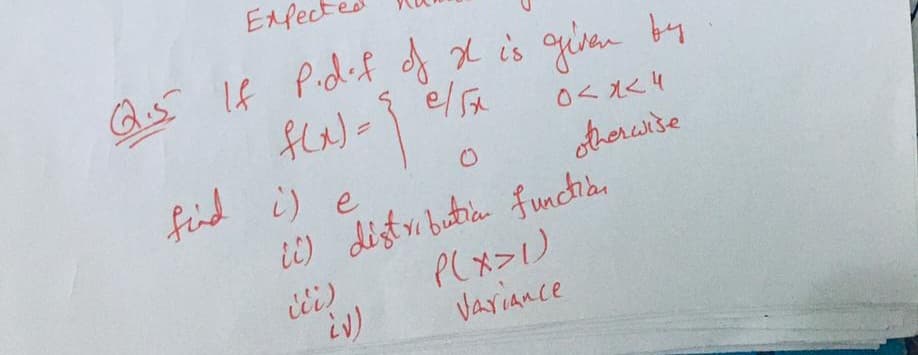 Expected
Q.5 If P.d.f of x is given by
f(x) = { e/√x 0<x<4
0 otherwise
find i) e
ii) distribution function
iii) P(x>1)
iv) Variance